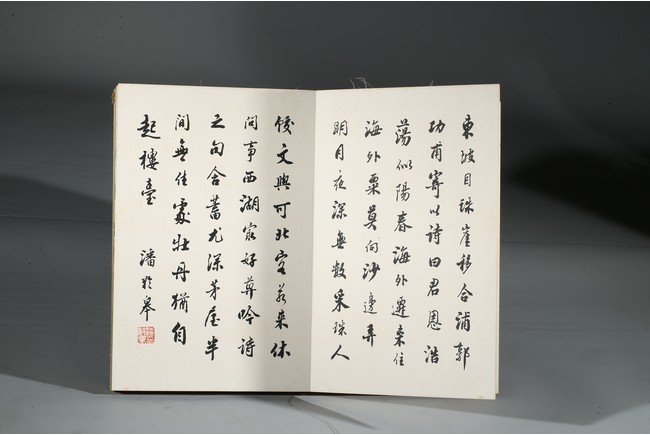 東坡自珠崖移合浦郭
功甫寄以詩曰君恩浩
蕩似陽春海外遷來住
海外粟莫向沙邊弄
明月夜深無數采珠人
餞文與可北客若來休
問事西湖雖好莫吟詩
之句含蓄尤深茅屋半
間無住處牡丹猶自
起樓臺 潘齡皋